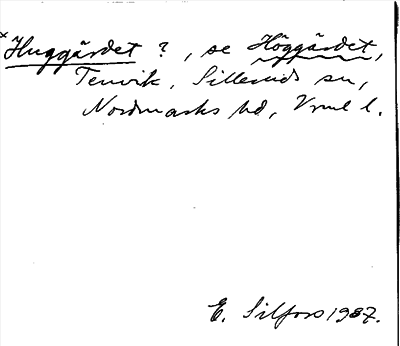 *Huggärdet ?, se Höggärdet,
Tenvik, Silleruds sn,
Nordmarks hd, Vrml l.
E. Silfors 1937.